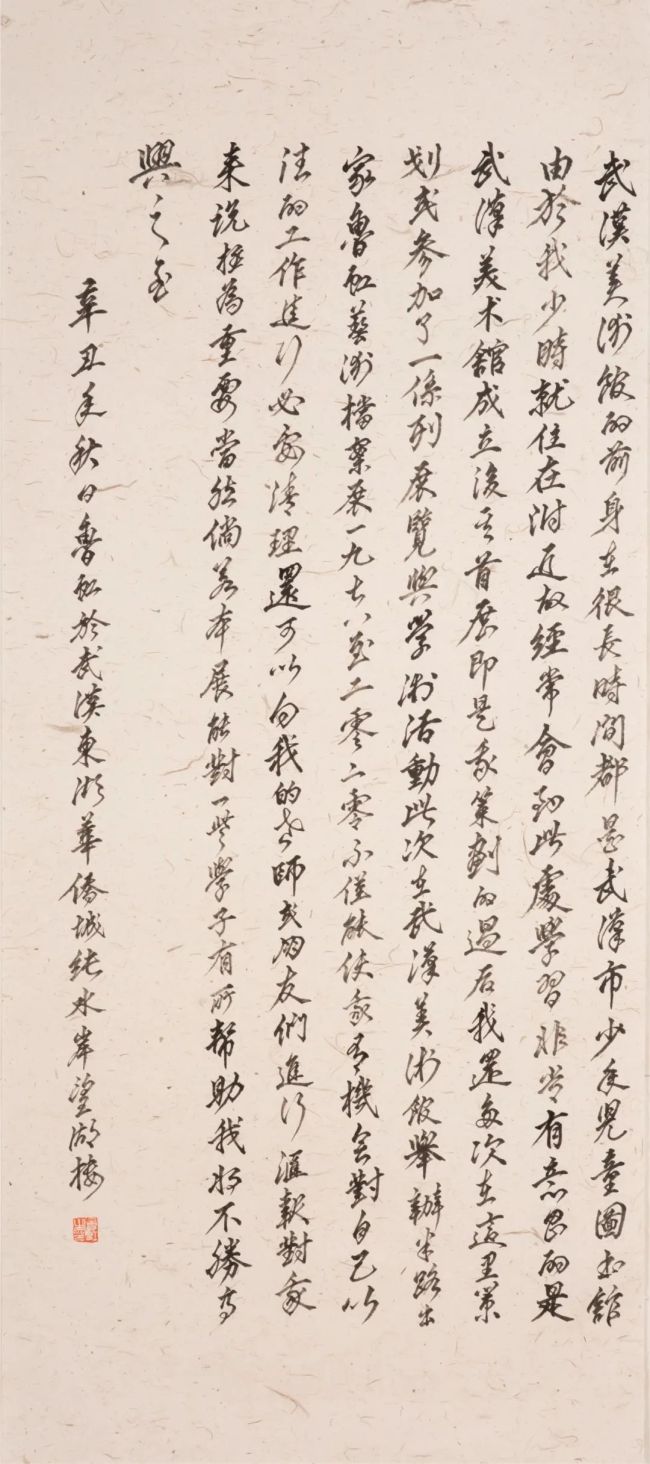 武漢美術館的前身在很長時間都是武漢市少年兒童圖書館
由於我少時就住在附近故經常會到此處學習非常有意思的是
武漢美术館成立後其首展即是我策劃的過后我還多次在這里策
划或參加了一係列展覽與學術活動此次在武漢美術館舉辦半路出
家魯虹藝術檔案展一九七八至二零二零不僅能使我有機会對自己以
往的工作進行必要清理還可以向我的老師或朋友們進行滙報對我
来说極為重要當然倘若本展能對一些學子有所幫助我將不勝高
興之至
辛丑年秋日魯虹於武漢東湖華僑城純水岸望湖樓